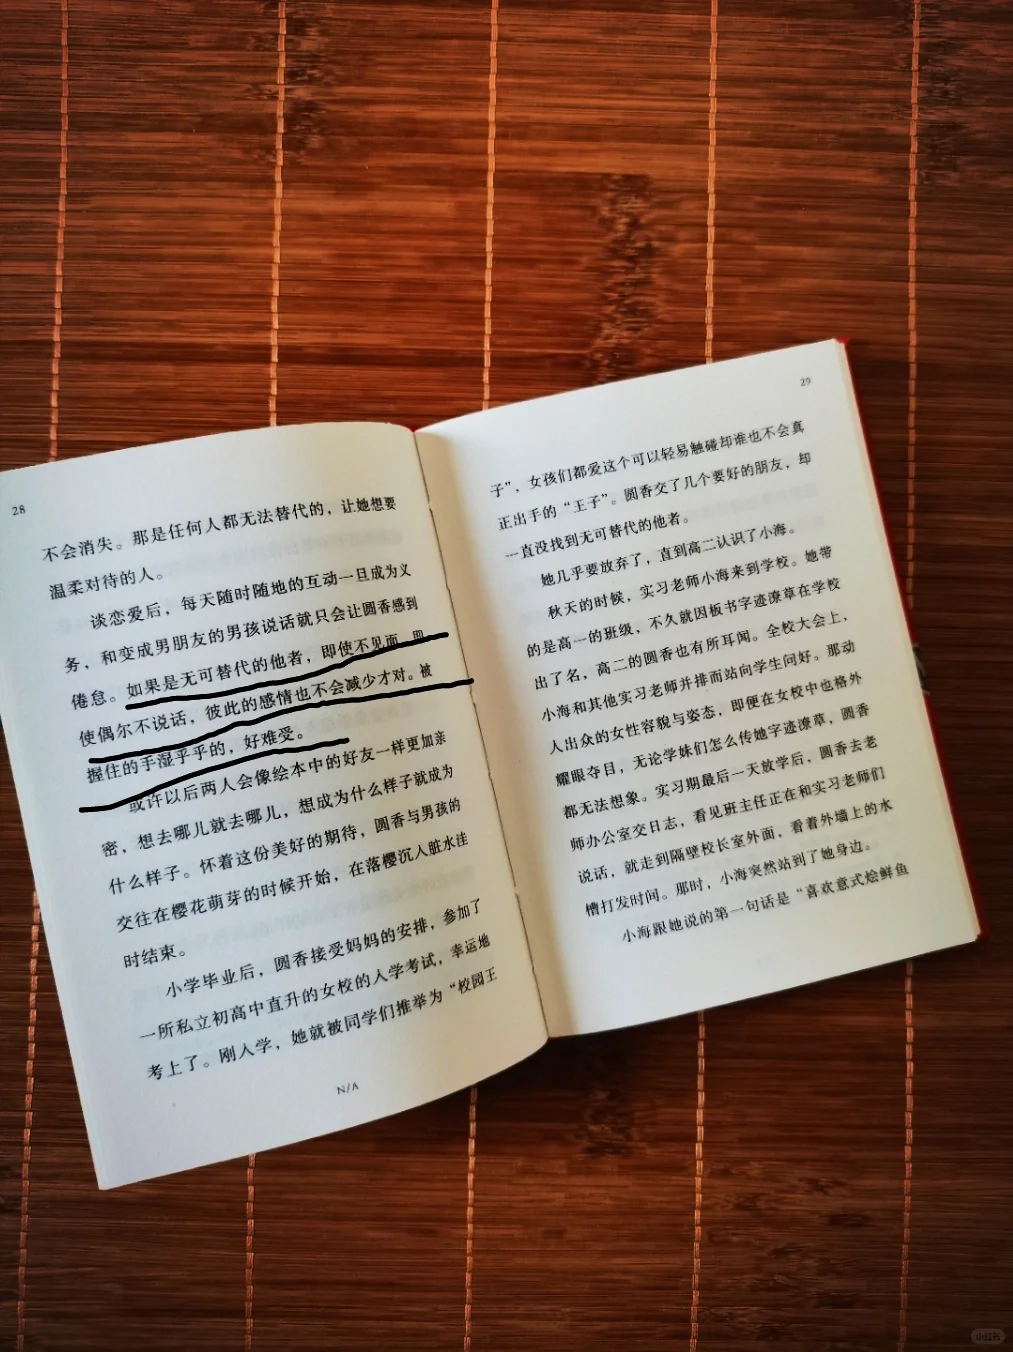 28
不会消失。那是任何人都无法替代的，让她想要
温柔对待的人。
谈恋爱后，每天随时随地的互动一旦成为义
务，和变成男朋友的男孩说话就只会让圆香感到
倦怠。如果是无可替代的他者，即使不见面，即
使偶尔不说话，彼此的感情也不会减少才对。被
握住的手湿乎乎的，好难受。
或许以后两人会像绘本中的好友一样更加亲
密，想去哪儿就去哪儿，想成为什么样子就成为
什么样子。怀着这份美好的期待，圆香与男孩的
交往在樱花萌芽的时候开始，在落樱沉入脏水洼
时结束。
小学毕业后，圆香接受妈妈的安排，参加了
一所私立初高中直升的女校的入学考试，幸运地
考上了。刚入学，她就被同学们推举为“校园王
N/A
29
子”，女孩们都爱这个可以轻易触碰却谁也不会真
正出手的“王子”。圆香交了几个要好的朋友，却
一直没找到无可替代的他者。
她几乎要放弃了，直到高二认识了小海。
秋天的时候，实习老师小海来到学校。她带
的是高一的班级，不久就因板书字迹潦草在学校
出了名，高二的圆香也有所耳闻。全校大会上，
小海和其他实习老师并排而站向学生问好。那动
人出众的女性容貌与姿态，即便在女校中也格外
耀眼夺目，无论学妹们怎么传她字迹潦草，圆香
都无法想象。实习期最后一天放学后，圆香去老
师办公室交日志，看见班主任正在和实习老师们
说话，就走到隔壁校长室外面，看着外墙上的水
槽打发时间。那时，小海突然站到了她身边。
小海跟她说的第一句话是“喜欢意式烩鲜鱼
小红书